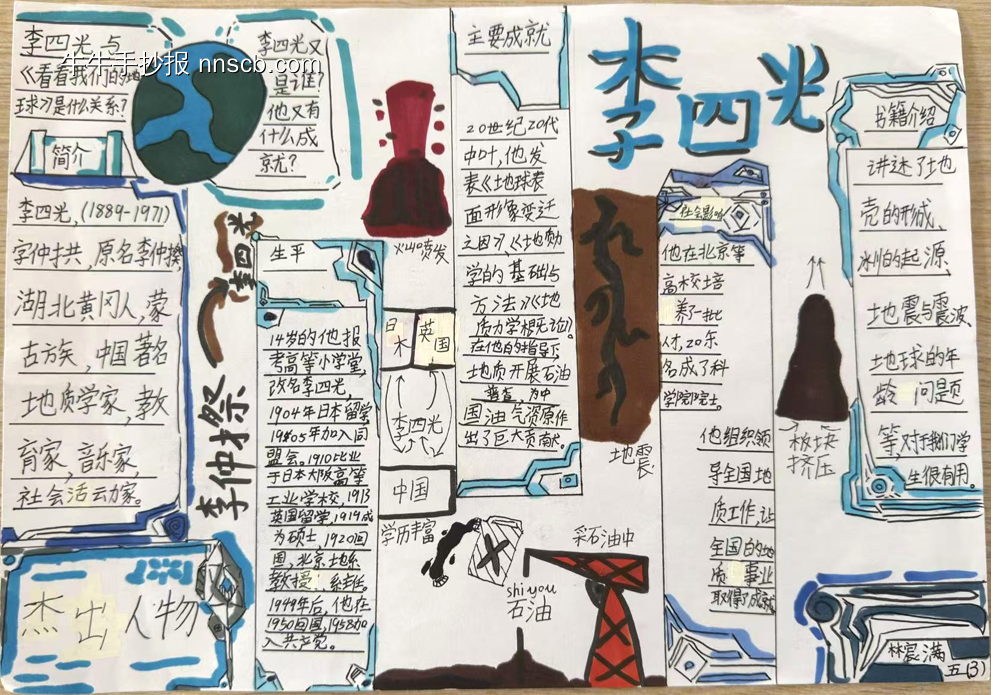 李四光与
《看看我们的地
球》是什么关系?
牛牛手抄报 nnscb.com
李四光又
是谁?
他又有
什么成
就?
简介
李四光,(1889-1971)
字仲拱,原名李仲揆
湖北黄冈人,蒙
古族,中国著名
地质学家,教
育家,音乐家
社会活动家。
杰出人物
李四光
李仲揆
生平
14岁的他报
考高等小学堂,
改名李四光,
1904年日本留学
1905年加入同
盟会。1910比业
于日本大阪高等
工业学校,1913
英国留学,1919成
为硕士,1920回
国,北京地系
教授
1949年后,他在
1950回国,1958加
入共产党。
火山喷发
日本
英国
李四光
中国
学历丰富
主要成就
20世纪20代
中叶,他发
表《地球表
面形象变迁
之因》,《地动
学的基础与
方法》《地
质力学概论》
在他的指导下
地质开展石油
普查,为中
国油气资原作
出了巨大贡献。
shi you
石油
采石油中
地震
李四光
社会影响
他在北京等
高校培
养了一批
人才,20余
名成了科
学院院士。
他组织领
导全国地
质工作,让
全国的地
质事业
取得了成就
板块
挤压
书籍介绍
讲述了地
壳的形成、
冰川的起源、
地震与震波、
地球的年
龄问题
等,对于我们学
生很有用。
林宸满
五(3)